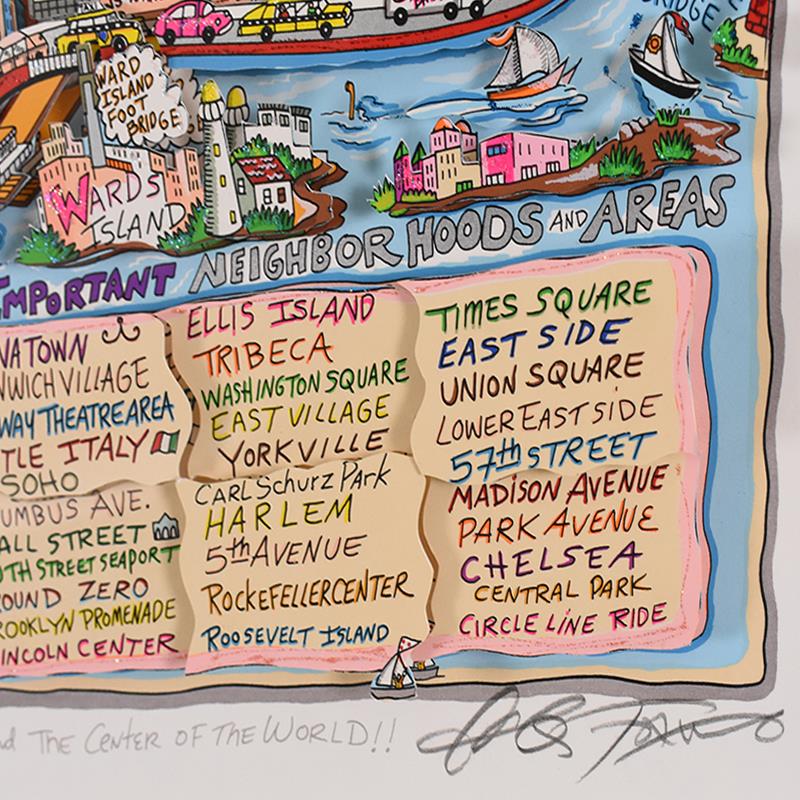 BRIDGE
WARD
ISLAND
FOOT
BRIDGE
WARDS
ISLAND
IMPORTANT NEIGHBORHOODS AND AREAS
NATOWN
NWICH VILLAGE
WAY THEATRE AREA
TLE ITALY
SOHO
UMBUS AVE.
ALL STREET
TH STREET SEAPORT
OUND ZERO
ROOKLYN PROMENADE
INCOLN CENTER
ELLIS ISLAND
TRIBECA
WASHINGTON SQUARE
EAST VILLAGE
YORKVILLE
CARL SCHURZ PARK
HARLEM
5th AVENUE
ROCKEFELLER CENTER
ROOSEVELT ISLAND
TIMES SQUARE
EAST SIDE
UNION SQUARE
LOWER EAST SIDE
57th STREET
MADISON AVENUE
PARK AVENUE
CHELSEA
CENTRAL PARK
CIRCLE LINE RIDE
nd THE CENTER OF THE WORLD!!